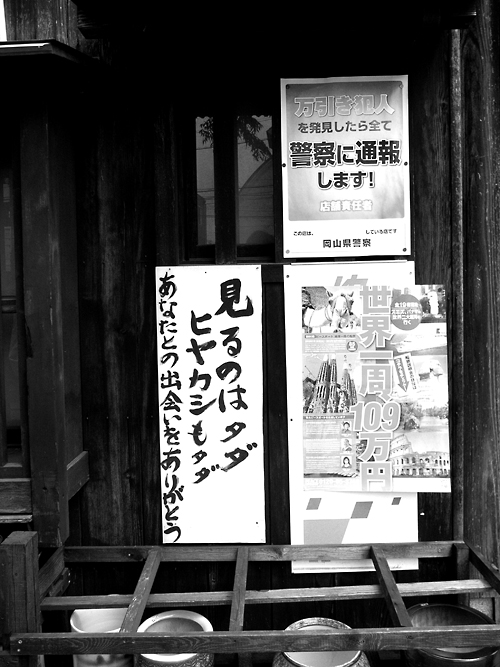 万引き犯人
を発見したら全て
警察に通報
します!
店舗責任者
この店は、
している店です
岡山県警察
見るのはタダ
ヒヤカシもタダ
あなたとの出会いをありがとう
世界一周
109万円